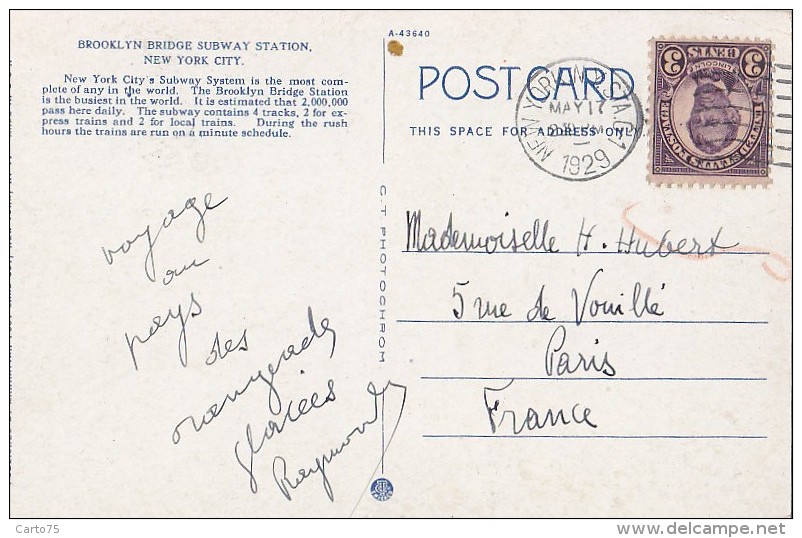 BROOKLYN BRIDGE SUBWAY STATION,
NEW YORK CITY.
New York City's Subway System is the most com-
plete of any in the world. The Brooklyn Bridge Station
is the busiest in the world. It is estimated that 2,000,000
pass here daily. The subway contains 4 tracks, 2 for ex-
press trains and 2 for local trains. During the rush
hours the trains are run on a minute schedule.
voyage
au
pays
des
orangeades
glacées
Raymond
A-43640
POST CARD
THIS SPACE FOR ADDRESS ONLY
C.T. PHOTOCHROM
NEW YORK, N.Y.
MAY 17
1929
3 CENTS 3
LINCOLN
Mademoiselle H. Hubert
5 rue de Vouillé
Paris
France
Carto75
delcampe.net